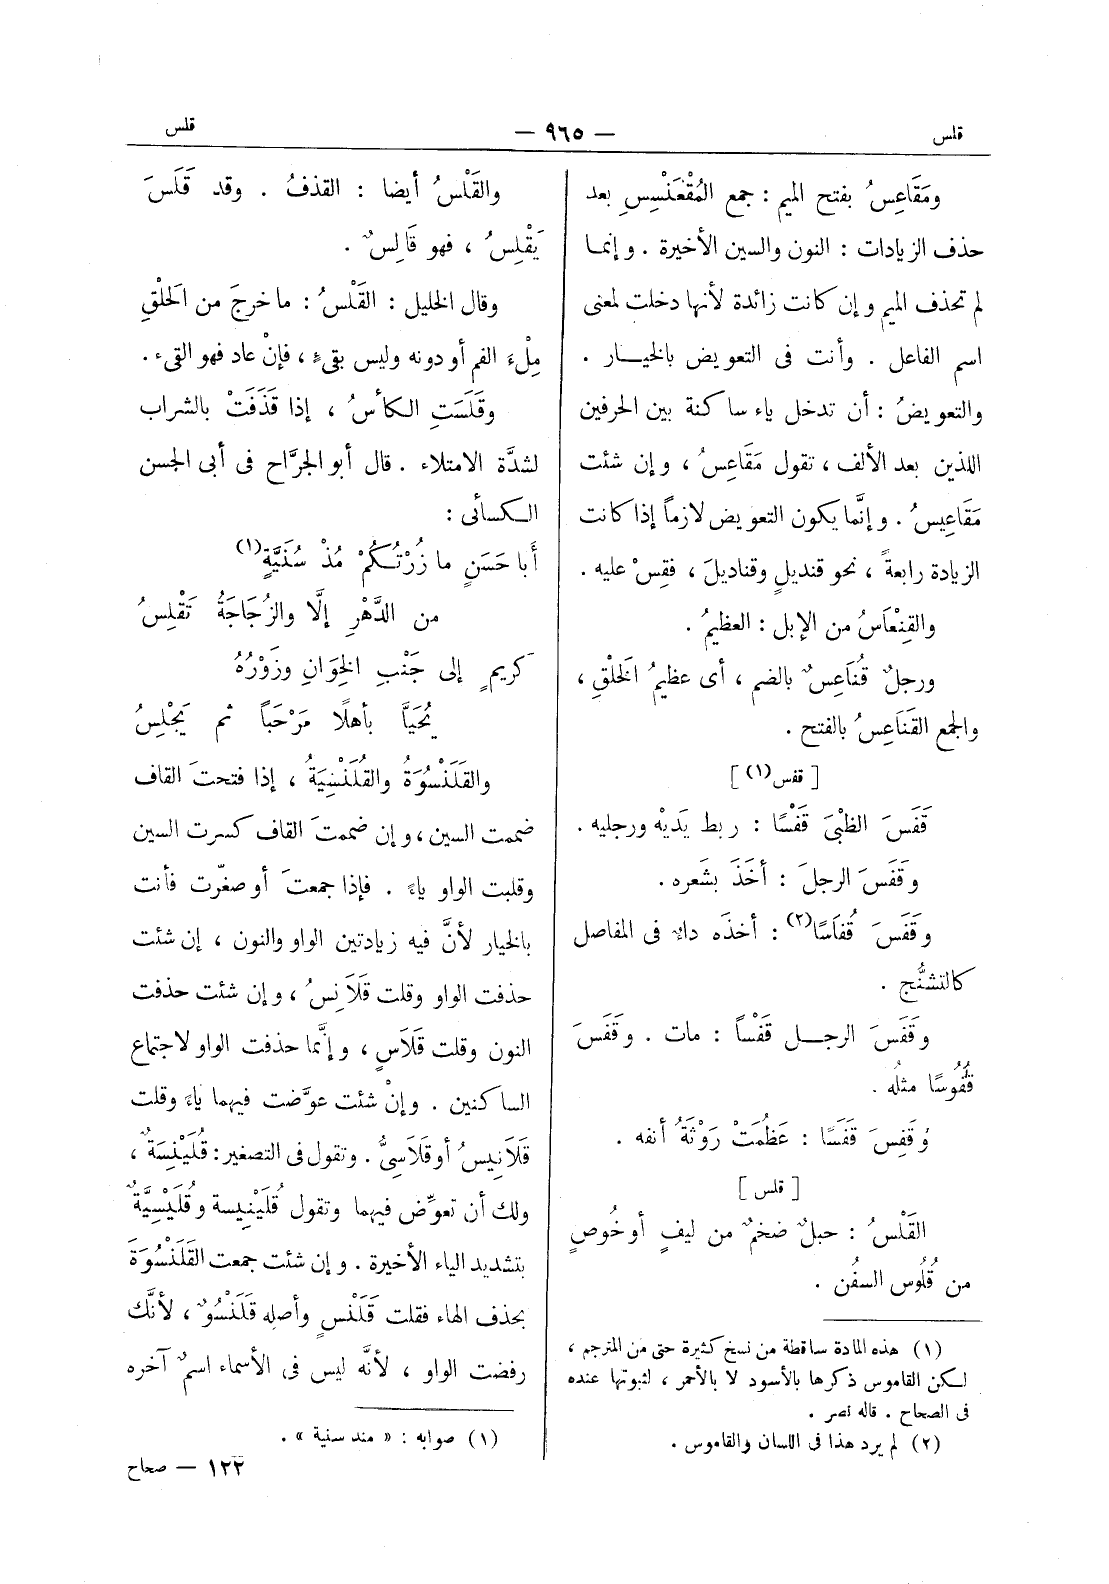 قلس
— ٩٦٥ —
قلس
ومَقَاعِسُ بفتح الميم : جمع المُقْعَنْسِسِ بعد
حذف الزيادات : النون والسين الأخيرة . وإنمـا
لم تحذف الميم وإن كانت زائدة لأنها دخلت لمعنى
اسم الفاعل . وأنت فى التعويض بالخيـــار .
والتعويضُ : أن تدخل ياء ساكنة بين الحرفين
اللذين بعد الألف ، تقول مَقَاعِسُ ، وإن شئت
مَقَاعِيسُ . وإنَّما يكون التعويض لازماً إذا كانت
الزيادة رابعةً ، نحو قنديلٍ وقناديلَ ، فقِسْ عليه .
والقِنْعَاسُ من الإبل : العظيمُ .
ورجلٌ قُنَاعِسٌ بالضم ، أى عظيمُ الخَلْقِ ،
والجمع القَنَاعِسُ بالفتح .
[ قفس (١) ]
قَفَسَ الظَبْىَ قَفْسًا : ربط يَديْه ورجليه .
وقَفَسَ الرجلَ : أخَذَ بشَعره .
وقَفَسَ قُفَاسًا (٢) : أخذَه داءٌ فى المفاصل
كالتشنُّج .
وقَفَسَ الرجــل قَفْساً : مات . وقَفَسَ
قُفُوسًا مثلُه .
وقَفِسَ قَفَسًا : عَظُمَتْ رَوْثَةُ أنفه .
[ قلس ]
القَلْسُ : حبلٌ ضخمٌ من ليفٍ أو خُوصٍ
من قُلُوس السفُن .
(١) هذه المادة ساقطة من نسخ كثيرة حتى من المترجم ،
لكن القاموس ذكرها بالأسود لا بالأحمر ، لثبوتها عنده
فى الصحاح . قاله نصر .
(٢) لم يرد هذا فى اللسان والقاموس .
والقَلْسُ أيضا : القذفُ . وقد قَلَسَ
يَقْلِسُ ، فهو قَالِسٌ .
وقال الخليل : القَلْسُ : ما خرجَ من الحَلْقِ
مِلْءَ الفم أو دونه وليس بقىءٍ ، فإنْ عاد فهو القىء .
وقَلَسَتِ الكأسُ ، إذا قَذَفَتْ بالشراب
لشدَّة الامتلاء . قال أبو الجرَّاح فى أبى الحسن
الكسائى :
أَبا حَسَنٍ ما زُرْتُكُمْ مُذْ سُنَيَّةٍ (١)
من الدَّهْرِ إلَّا والزُجَاجَةُ تَقْلِسُ
كَريمٍ إلى جَنْبِ الخِوَانِ وزَوْرُهُ
يُحَيَّا بأهلًا مَرْحَباً ثم يَجْلِسُ
والقَلَنْسُوَةُ والقُلَنْسِيَةُ ، إذا فتحتَ القاف
ضممت السين ، وإن ضممتَ القاف كسرت السين
وقلبت الواو ياءً . فإذا جمعتَ أو صغّرت فأنت
بالخيار لأنَّ فيه زيادتين الواو والنون ، إن شئت
حذفت الواو وقلت قَلَانِسُ ، وإن شئت حذفت
النون وقلت قَلَاسٍ ، وإنَّما حذفت الواو لاجتماع
الساكنين . وإنْ شئت عوَّضت فيهما ياءً وقلت
قَلَانِيسُ أو قَلَاسِىُّ . وتقول فى التصغير : قُلَيْنِسَةٌ ،
ولك أن تعوِّض فيهما وتقول قُلَيْنِيسة وقُلَيْسِيَّةٌ
بتشديد الياء الأخيرة . وإن شئت جمعت القَلَنْسُوَةَ
بحذف الهاء فقلت قَلَنْسٍ وأصله قَلَنْسُوٌ ، لأنَّك
رفضت الواو ، لأنَّه ليس فى الأسماء اسمٌ آخره
(١) صوابه : « منذ سنية » .
١٢٢ — صحاح